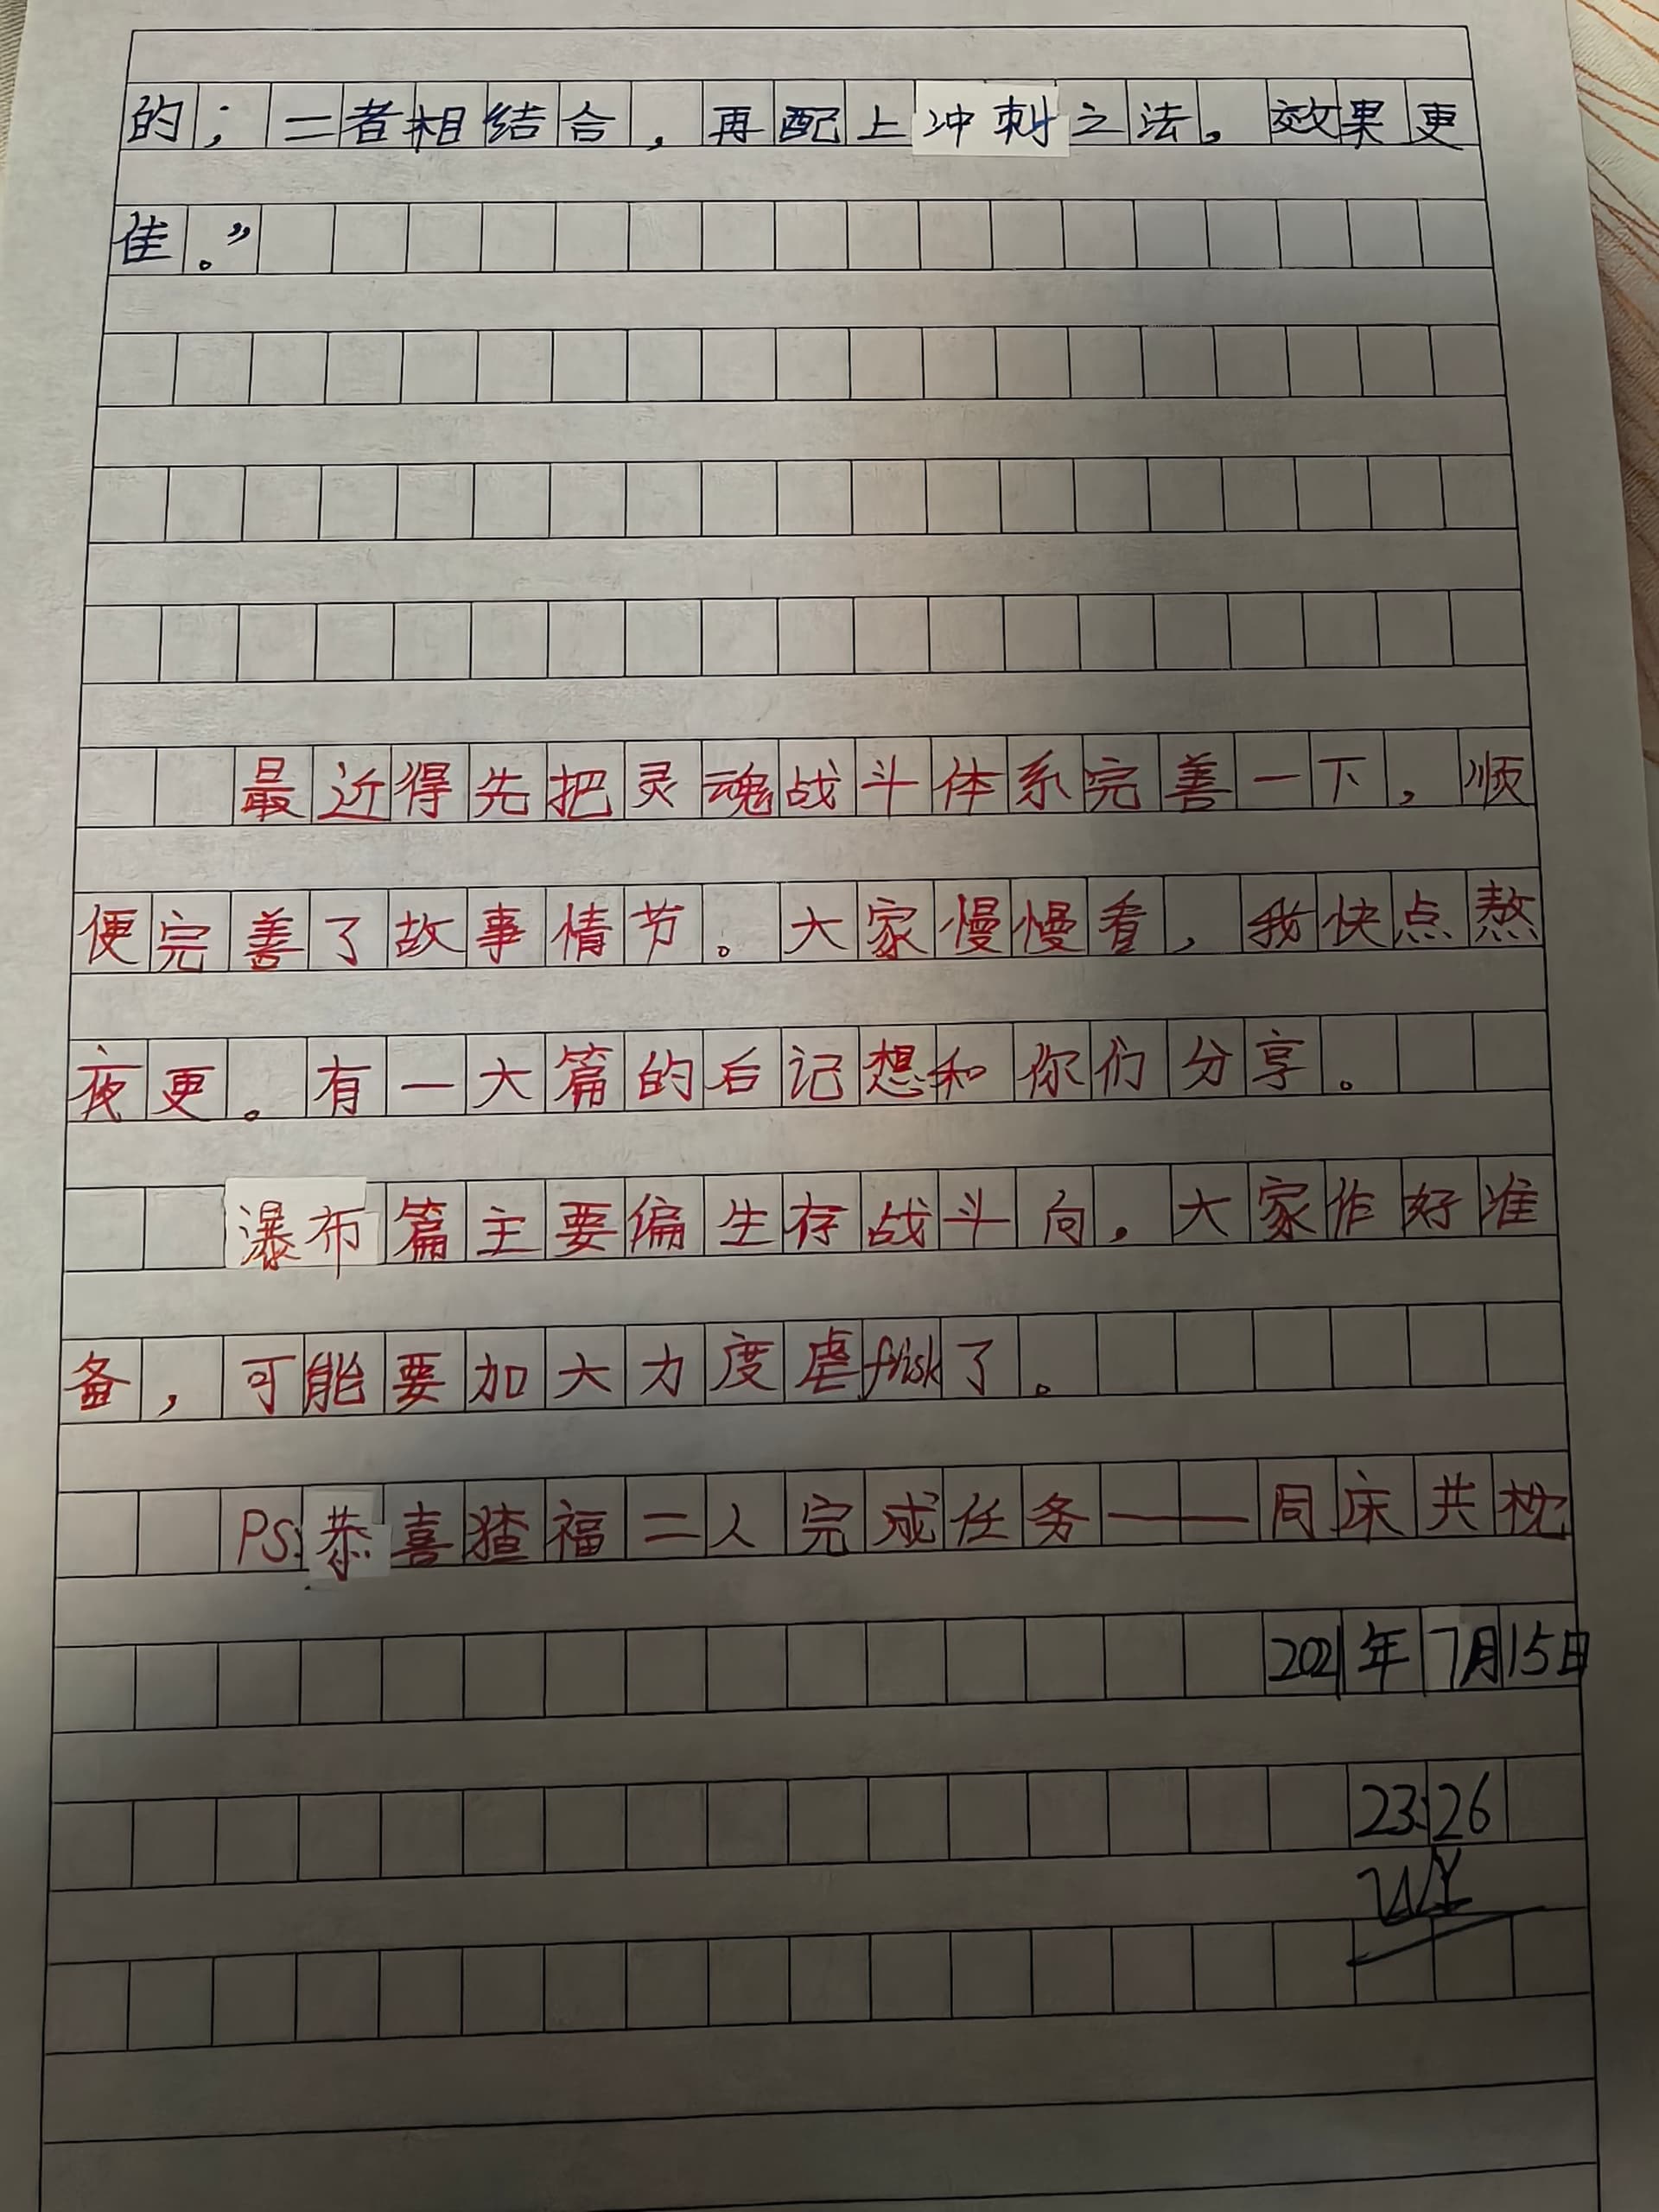 的；二者相结合，再配上冲刺之法，效果更
佳。”
最近得先把灵魂战斗体系完善一下，顺
便完善了故事情节。大家慢慢看，我快点熬
夜更。有一大篇的后记想和你们分享。
瀑布篇主要偏生存战斗向，大家作好准
备，可能要加大力度虐frisk了。
PS:恭喜猹福二人完成任务——同床共枕
2021年7月15日
23:26
WY